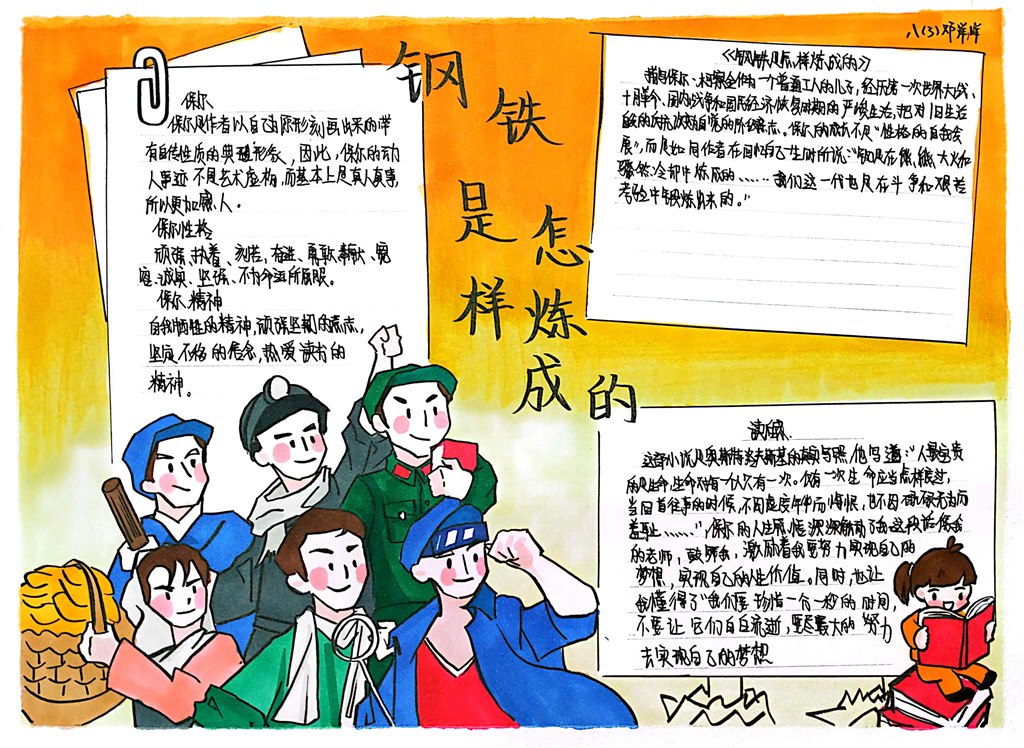 八(3)邓岸岸
钢铁是怎样炼成的
保尔
保尔是作者以自己为原形刻画出来的带
有自传性质的典型形象，因此，保尔的动
人事迹不是艺术虚构，而基本上是真人真事，
所以更加感人。
保尔性格
顽强、执着、刻苦，奋进、勇敢、奉献、宽
容、诚实、坚强、不为命运所屈服。
保尔精神
自我牺牲的精神，顽强坚韧的意志，
坚定不移的信念，热爱读书的
精神。
《钢铁是怎样炼成的》
描写保尔·柯察金作为一个普通工人的儿子，经历第一次世界大战、
十月革命、国内战争和国民经济恢复时期的严峻生活，把对旧生活
自觉的阶级意志。保尔的成长不是"性格的自我发
展"，而是如同作者在回忆自己生时所说："钢是在熊熊大火和
骤然冷却中炼成的……我们这一代也是在斗争和艰苦
考验中锻炼出来的。"
读后感
这部小说是奥斯特洛夫斯基的真实写照，他写道："人最宝贵
的是生命，生命对每一个人只有一次。仅有一次生命应当怎样度过，
当回首往事的时候，不因虚度年华而悔恨，也不因碌碌无为而
羞耻……"，保尔的人生观深深激励了我这段话像我
的老师，鼓舞我，激励着我要努力实现自己的
梦想，实现自己的人生价值。同时，也让
我懂得了我们要珍惜一分一秒的时间，
不要让它们白白流逝，要尽最大的努力
去实现自己的梦想